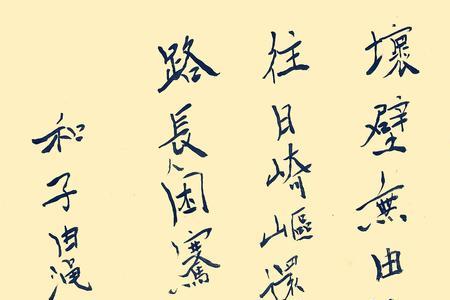 壞壁無由
往日崎嶇還
路長人困騫
和子由澠